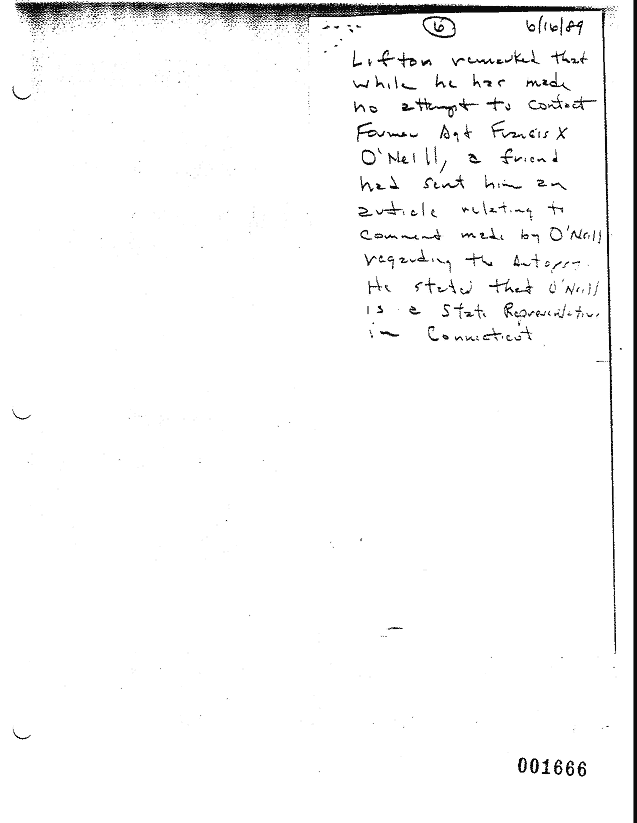 6 6/16/89
Lifton remarked that
while he has made
no attempt to contact
Former Agt Francis X
O'Neill, a friend
had sent him an
article relating to
comment made by O'Neill
regarding the Autopsy.
He stated that O'Neill
is a State Representative
in Connecticut.
001666